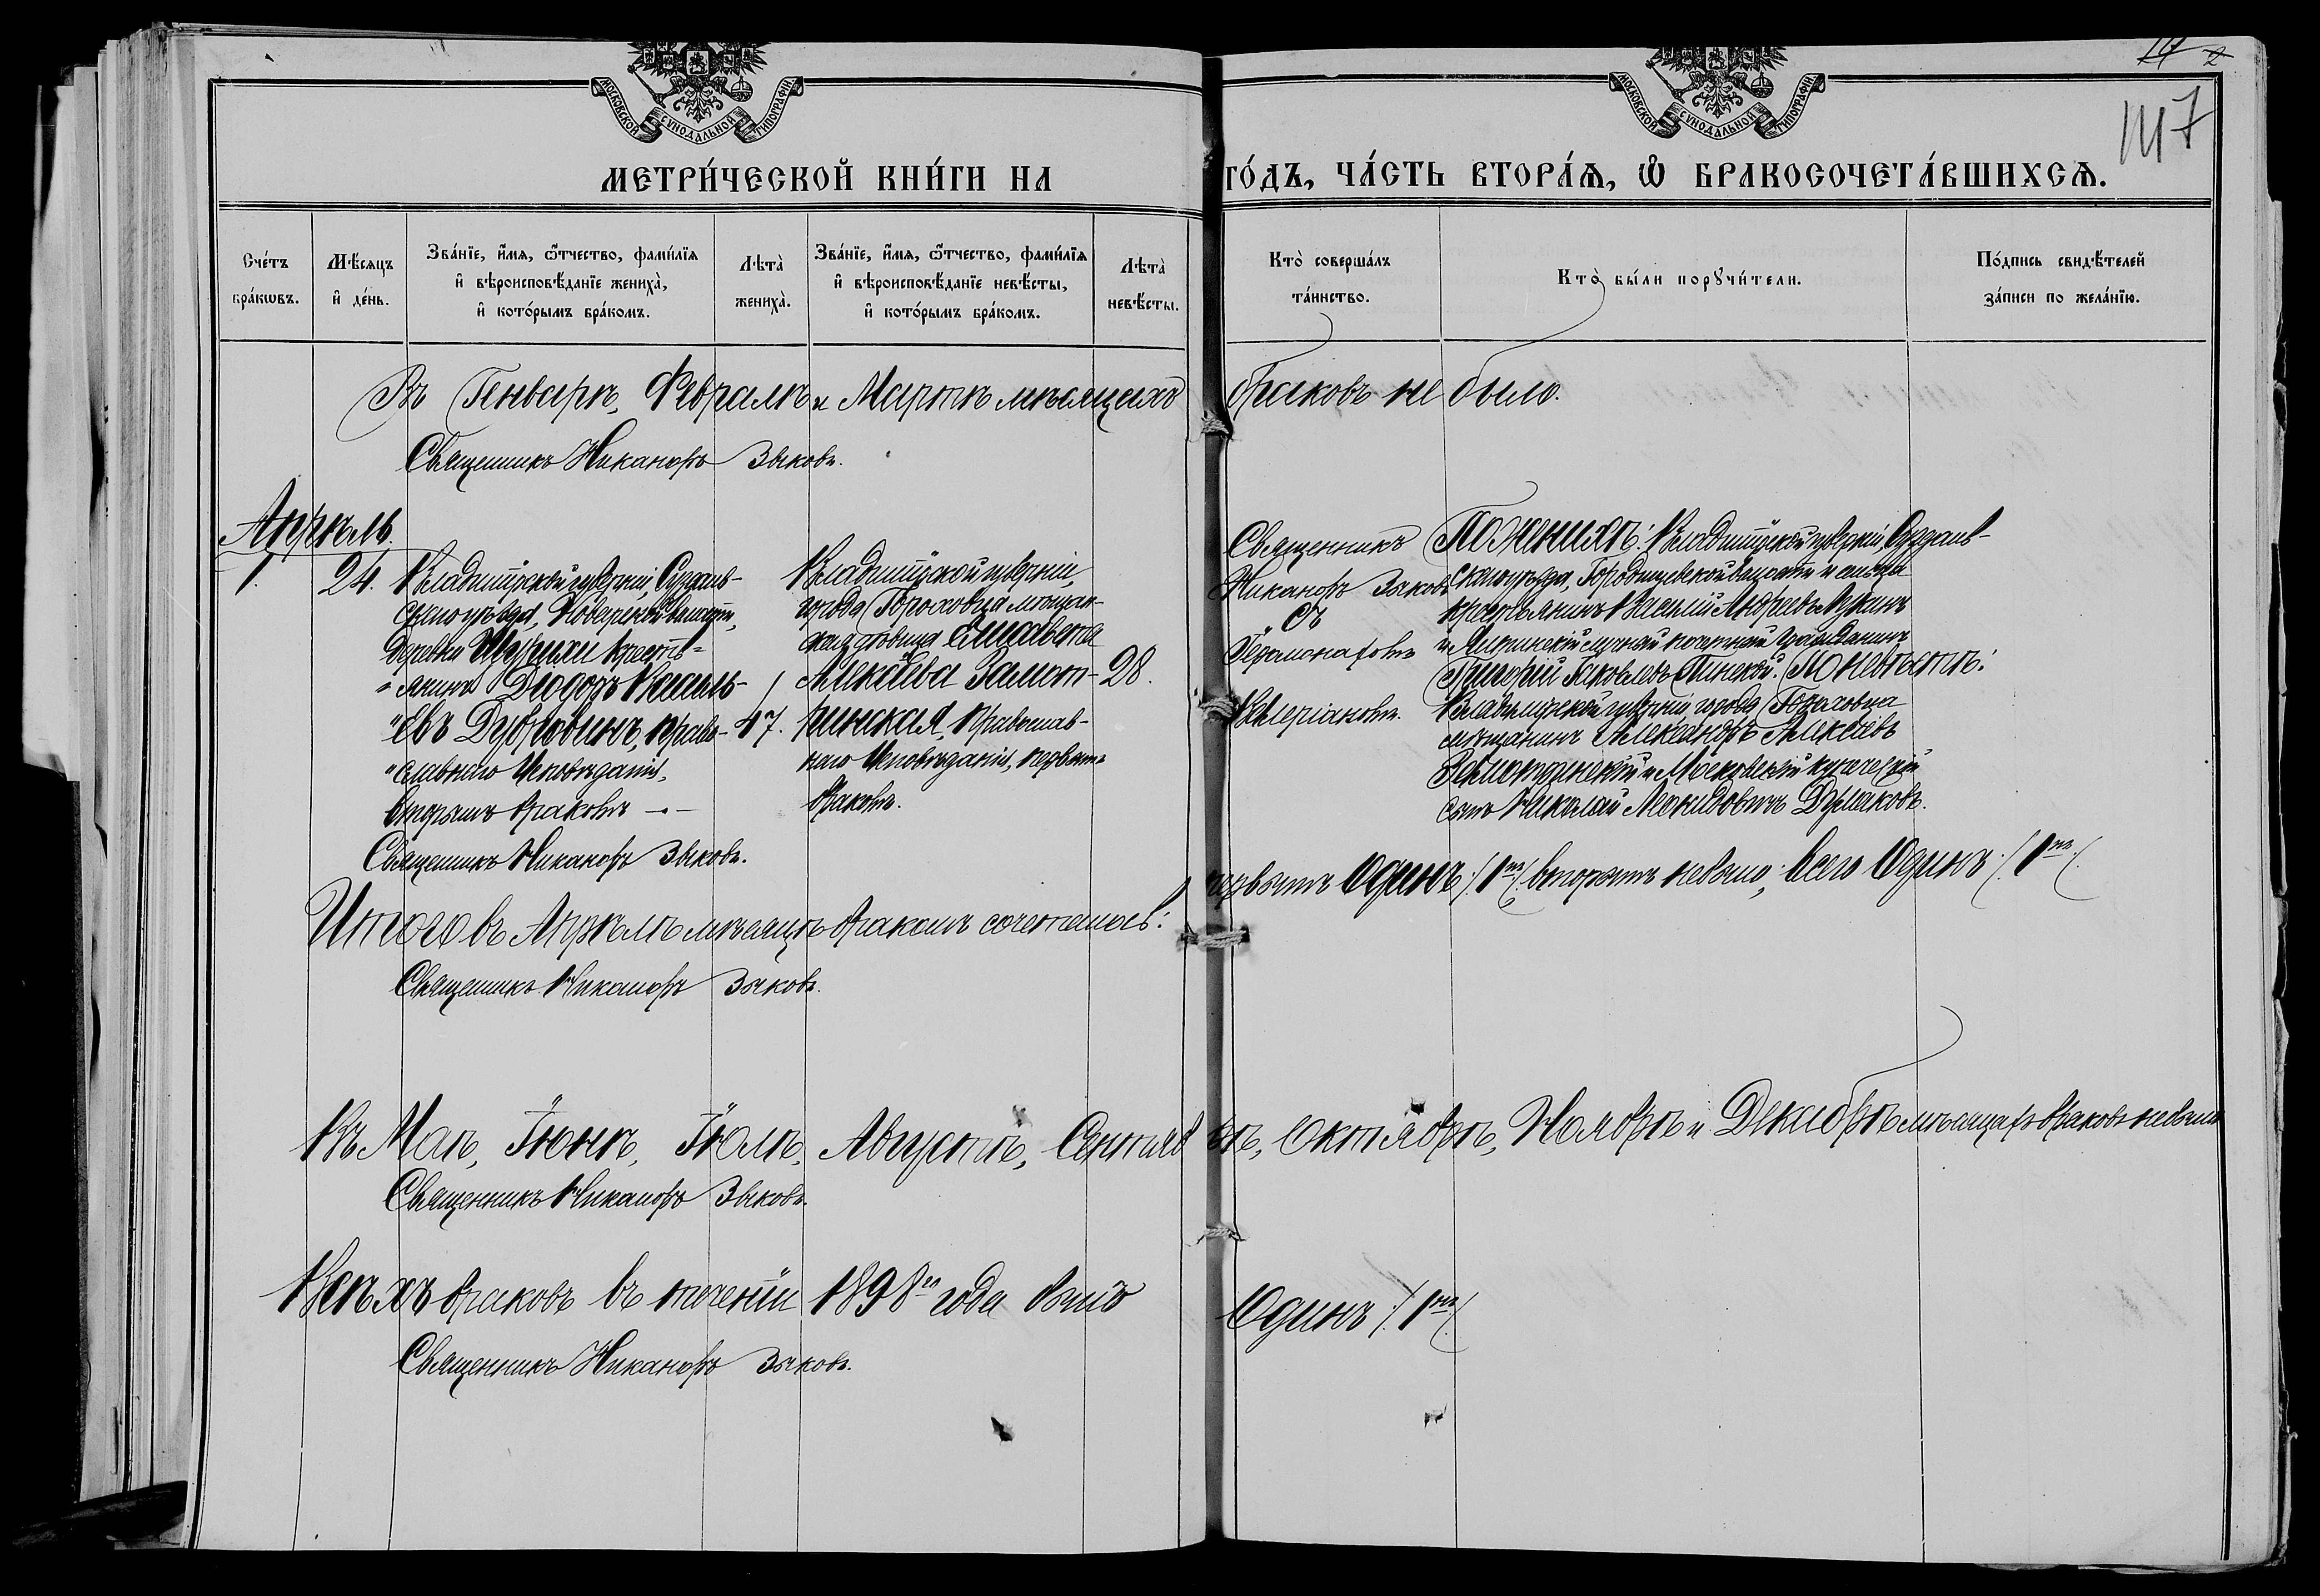 14 2
117
МОСКОВСКОЙ СѴНОДАЛЬНОЙ ТИПОГРАФІИ
МОСКОВСКОЙ СѴНОДАЛЬНОЙ ТИПОГРАФІИ
МЕТРИ́ЧЕСКОЙ КНИ́ГИ НА ГО́ДЪ, ЧА́СТЬ ВТОРА́Ѧ, Ѡ БРАКОСОЧЕТА́ВШИХСѦ.
Сче́тъ бра́кѡвъ.
Мѣ́сяцъ и҆ де́нь.
Зва́нїе, и҆́мя, ѻ҆́тчество, фами́лїя и҆ вѣроисповѣ́данїе жениха̀, и҆ кото́рымъ бра́комъ.
Лѣта̀ жениха̀.
Зва́нїе, и҆́мя, ѻ҆́тчество, фами́лїя и҆ вѣроисповѣ́данїе невѣ́сты, и҆ кото́рымъ бра́комъ.
Лѣта̀ невѣ́сты.
Кто̀ соверша́лъ та́инство.
Кто̀ бы́ли порꙋчи́тели.
По́дпись свидѣ́телей за́писи по жела́нїю.
Въ Генварѣ, Февралѣ и Мартѣ мѣсяцахъ браковъ не было.
Священникъ Никаноръ Зыковъ.
Апрѣль.
1.
24.
Владимірской губерніи, Суздаль-
скаго уѣзда, волости,
деревни крестъ-
янинъ Ѳеодоръ Василь-
евъ Дубровинъ, право-
славнаго исповѣданія,
вторымъ бракомъ
47.
Владимірской губерніи,
города Гороховца мѣщан-
ская дѣвица Елисавета
Алексѣева Замот-
ринская, православ-
наго исповѣданія, первымъ
бракомъ.
28.
Священникъ
Никаноръ Зыковъ
съ
Валеріановъ.
По женихѣ: Владимірской губерніи, Суздаль-
скаго уѣзда, волости и сельца
крестьянинъ Василій Андреевъ
и личный почетный гражданинъ
Григорій Яковлевъ По невѣстѣ:
Владимірской губерніи города Гороховца
мѣщанинъ Александръ Алексѣевъ
Замотринскій и Московскій купеческій
сынъ Николай Леонидовичъ
Священникъ Никаноръ Зыковъ.
Итого въ Апрѣлѣ мѣсяцѣ бракомъ сочеталось: первымъ Одинъ /1нъ/ вторымъ не было, всего Одинъ /1нъ/.
Священникъ Никаноръ Зыковъ.
Въ Маѣ, Іюнѣ, Іюлѣ, Августѣ, Сентябрѣ, Октябрѣ, Ноябрѣ и Декабрѣ мѣсяцахъ браковъ не было
Священникъ Никаноръ Зыковъ.
Всѣхъ браковъ въ теченіи 1898го года было Одинъ /1нъ/.
Священникъ Никаноръ Зыковъ.